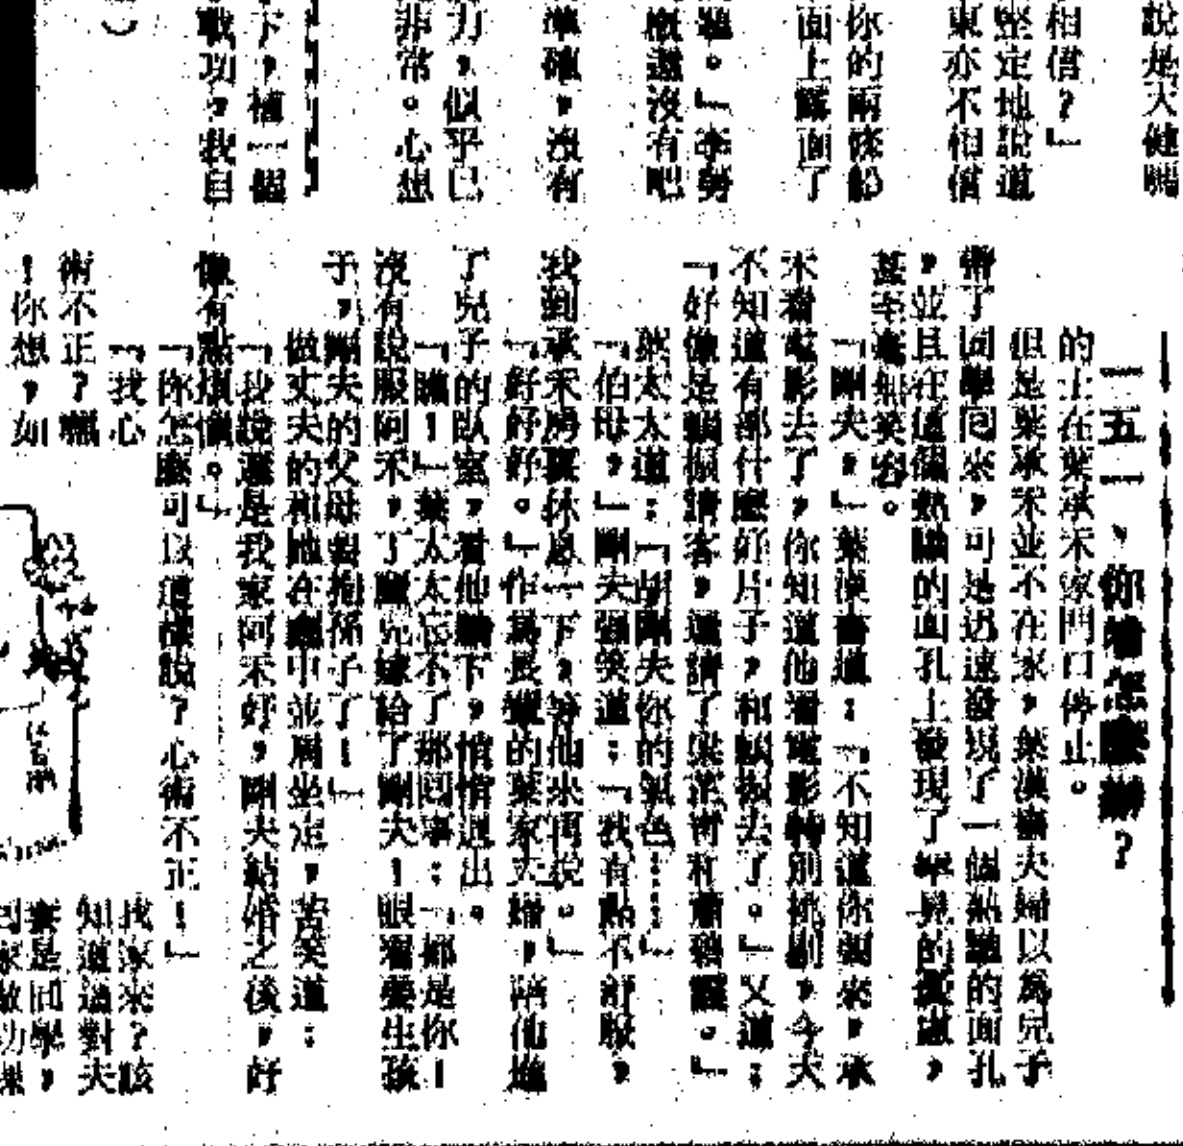 說是大健嗎
相信？」
堅定地說道
東亦不相信
你的兩條船
面上露面了
。」李勢
概還沒有吧
準確，沒有
力，似乎已
非常。心想
下，植一個
戰功，我自
一五一、你看怎麼辦？
的士在葉承禾家門口停止。
但是葉承禾並不在家，葉漢書夫婦以為兒子
帶了同學回來，可是迅速發現了一個熟騐的面孔
，並且在這個熟騐的面孔上發現了罕見的憂慮，
甚至毫無笑容。
「剛夫，」葉漢書道：「不知道你要來，承
禾看電影去了，你知道他看電影特別挑剔，今天
不知道有部什麼好片子，和振去了。」又道：
「好像是振請客，還請了葉芷青和蕭碧霞。」
葉太太道：「胡剛夫你的氣色……」
「伯母，」剛夫強笑道：「我有點不舒服，
我到承禾房裏休息一下，等他來再說。」
「好好好。」作為長輩的葉家夫婦，陪他進
了兒子的臥室，看他躺下，悄悄退出。
「瞧！」葉太太忘不了那回事：「都是你！
沒有說服阿禾，丁麗兒嫁給了剛夫！眼看要生孩
子，剛夫的父母要抱孫子了！」
做丈夫的和她在廳中並肩坐定，苦笑道：
「我說還是我家阿禾好，剛夫結婚之後，好
像有點煩惱。」
「你怎麼可以這樣說？心術不正！」
「我心
術不正？嘿
！你想，如
我家來？該
知道過對夫
妻是同學，
回家做功課